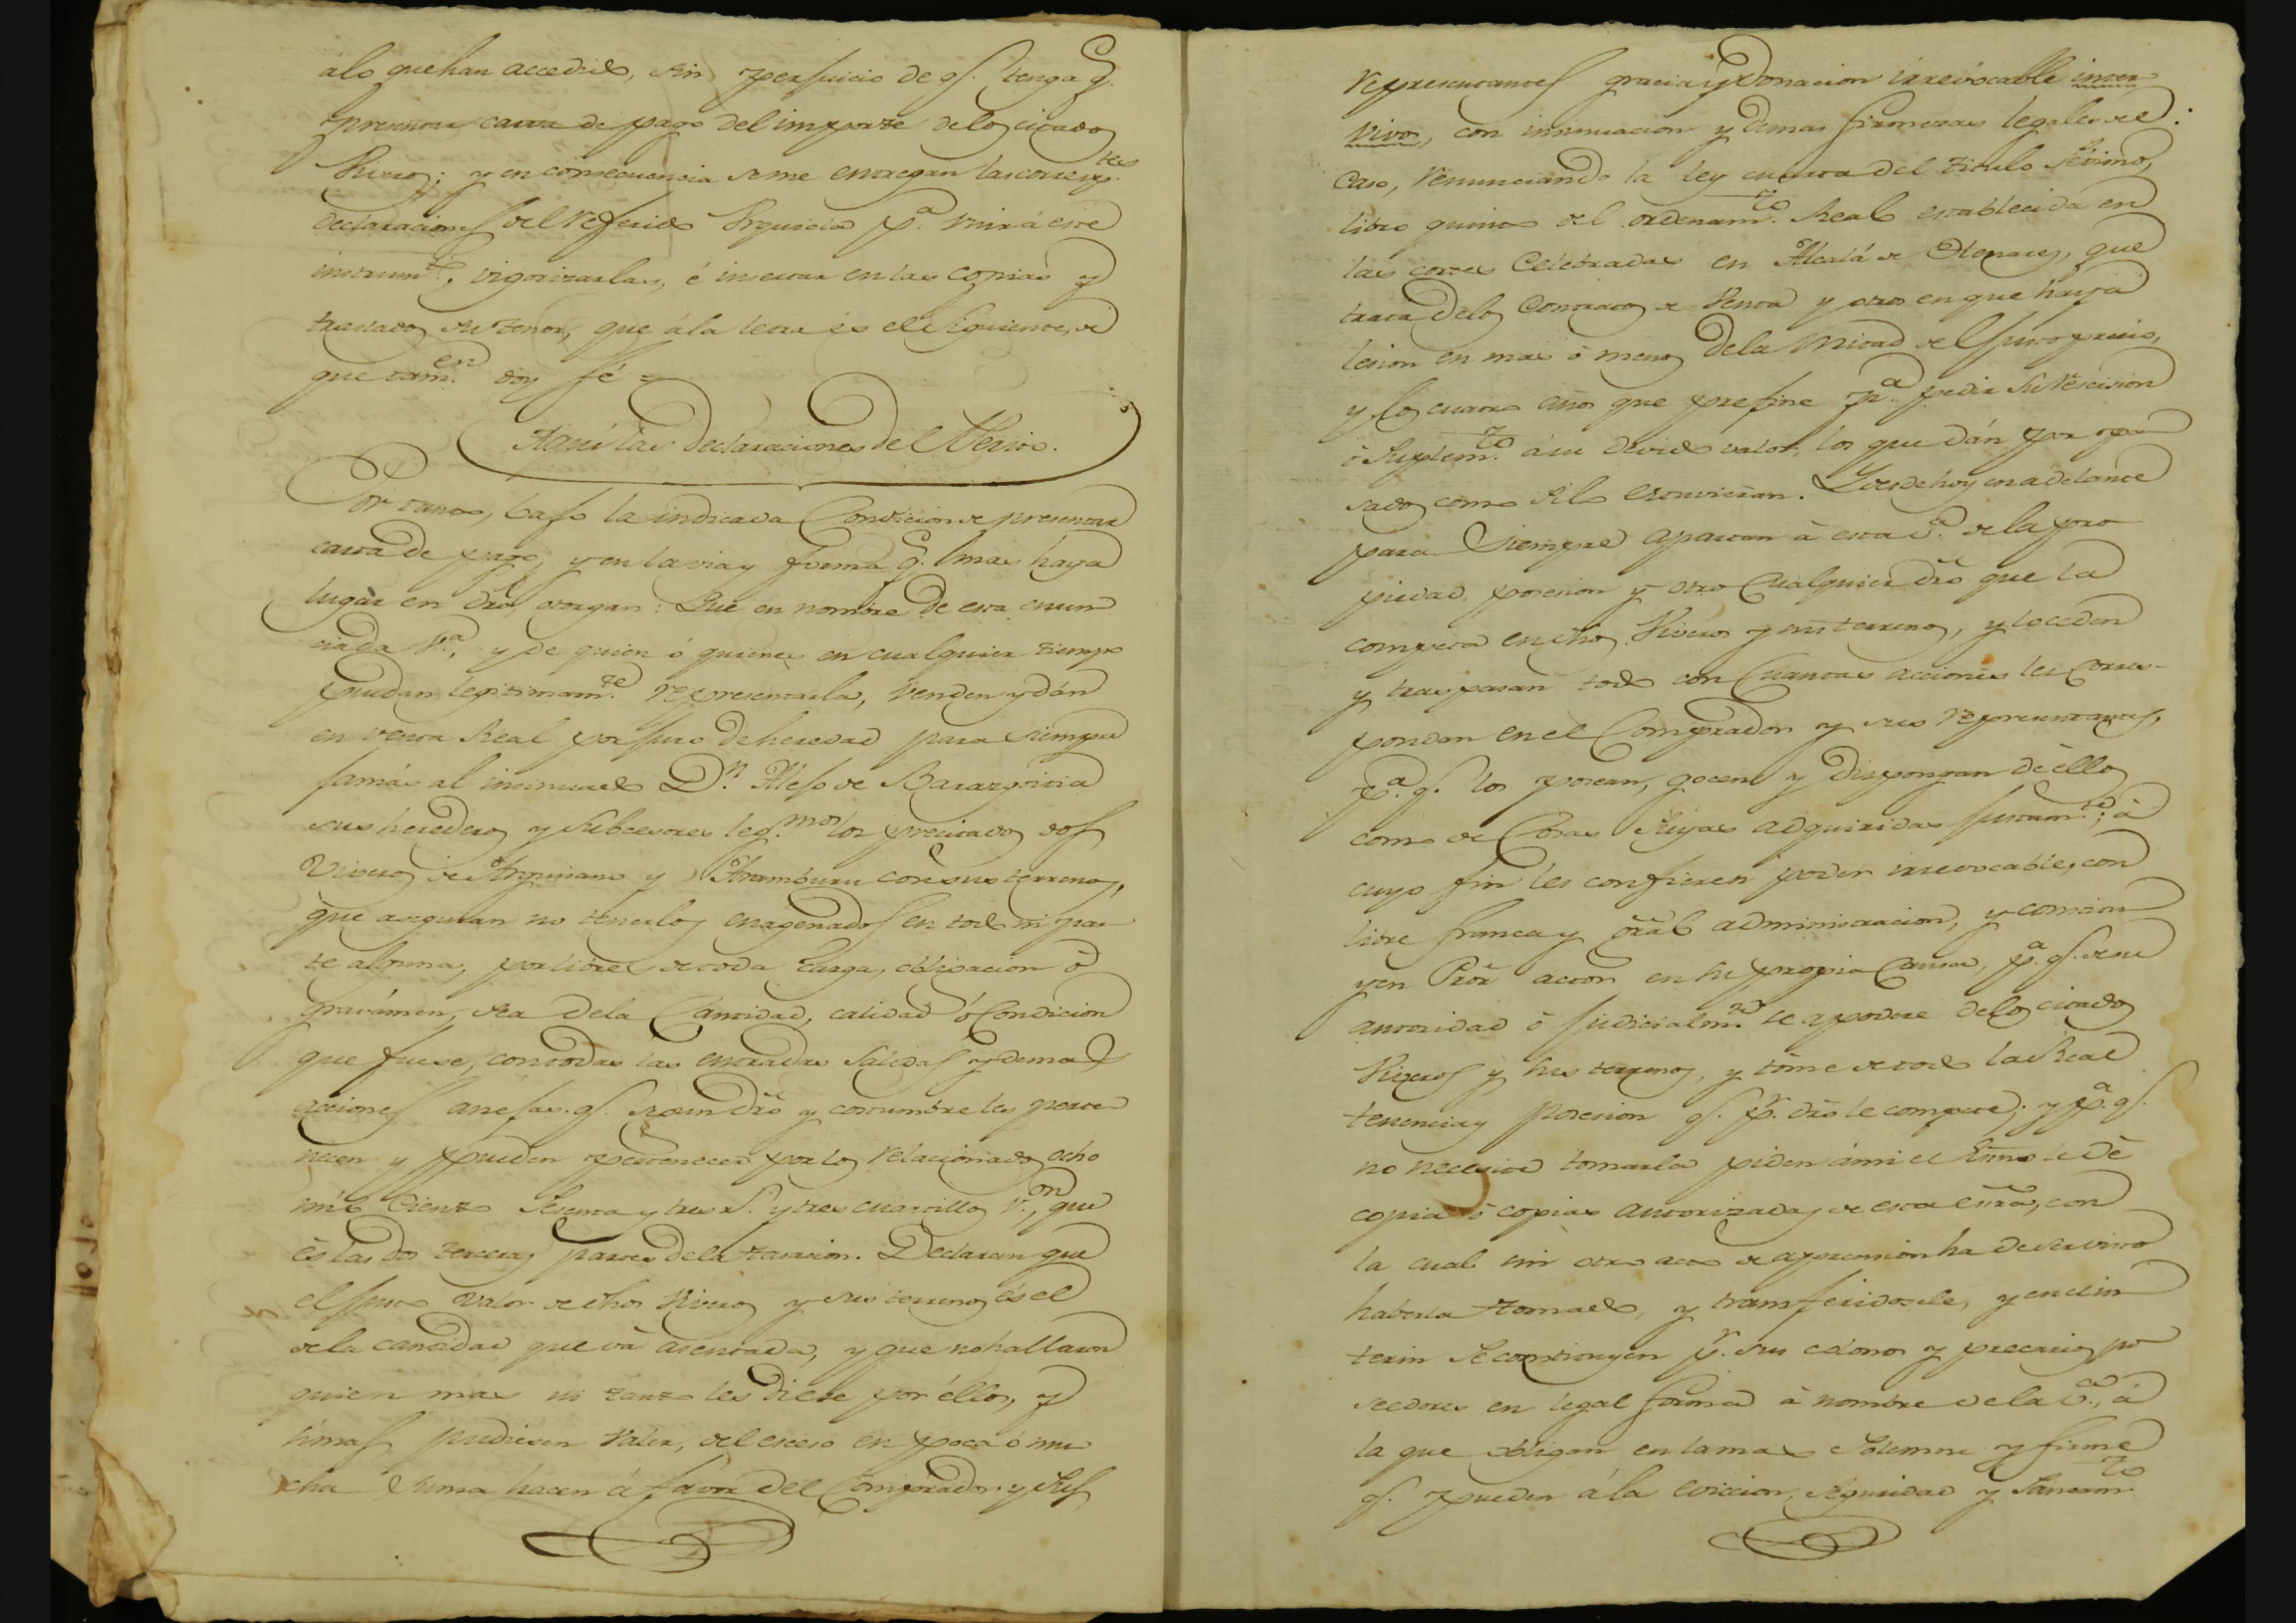 álo que han accedido, sin perjuicio de q.e tenga q.
presentar carta de pago del importe delos citados
Viveros; y en consecuencia seme entregan las corresp.tes
declaraciones del referido Perito p.a unir á este
instrum.to, vigorizarlas, é insertar en las copias y
traslados su tenor, que ála letra és el siguiente, de
que tam.en doy fé =
Aquí las declaraciones del Perito.
Por tanto, bajo la indicada Condicion de presentar
carta de pago, y en la via y forma q. mas haya
lugar en dró, otorgan: Que en nombre de esta enun
ciada V.a, y de quien ó quienes en cualquier tiempo
puedan legitimam.te representarla, venden y dán
en venta Real por juro de heredad para siempre
jamás al insinuado D.n Alejo de
sus herederos y subcesores leg.mos los precitados dos
Viveros de y Aramburu con sus terrenos,
que aseguran no tenerlos enagenados en todo ni par
te alguna, por libres de toda carga, obligacion ó
gravámen, sea dela Cantidad, calidad ó Condicion
que fuese, con todas las entradas salidas y demas
acciones anejas q. segun dró y costumbre les perte
necen y pueden pertenecer por los relacionados ocho
mil ciento sesenta y tres r.s y tres cuartillos v.on que
és las dos terceras partes dela tasacion. Declaran que
el justo valor de dhos Viveros y sus terrenos és el
dela cantidad que vá asentada, y que no hallaron
quien mas ni tanto les diese por éllos, y
si mas pudiesen valer, del exceso en poca ó mu
cha suma hacen á favor del Comprador y sus
representantes gracia y donacion irrevocable inter
vivos, con insinuacion y demas firmezas legales del
caso, renunciando la ley cuarta del titulo setimo,
libro quinto del ordenam.to Real establecida en
las cortes celebradas en Alcalá de Henares, que
trata delos Contratos de Venta y otros en que haya
lesion en mas ó menos dela mitad del justo precio,
y los cuatro años que prefine p.a pedir su rescision
ó suplem.to á su devido valor, los que dán por pa
sados como silo estuvieran. Y desde hoy en adelante
para siempre apartan á esta V.a de la pro
piedad, posesion y otro cualquier dró que la
competa en dhos Viveros y sus terrenos, y lo ceden
y traspasan todo con cuantas acciones les corres-
pondan en el Comprador y sus representantes,
p.a q. los posean, gocen y dispongan de éllos
como de cosas suyas adquiridas justam.te; á
cuyo fin les confieren poder irrevocable, con
libre franca y grál administracion, y constitu
yen Prór actor en su propia Causa, p.a q. de su
autoridad ó judicialm.te se apodere delos citados
Viveros y sus terrenos, y tome de todo la Real
tenencia y posesion q. p.r dró le compete; y p.a q.
no necesite tomarla piden á mi el Essno le dé
copia ó copias autorizadas de esta essrá, con
la cual sin otro acto de aprension ha de ser visto
haberla tomado, y transferidosele, y en el in
terin se constituyen p.r sus colonos y precarios po
seedores en legal forma á nombre de la V.a, á
la que obligan en la mas solemne y firme
q. pueden á la eviccion, seguridad y saneam.to